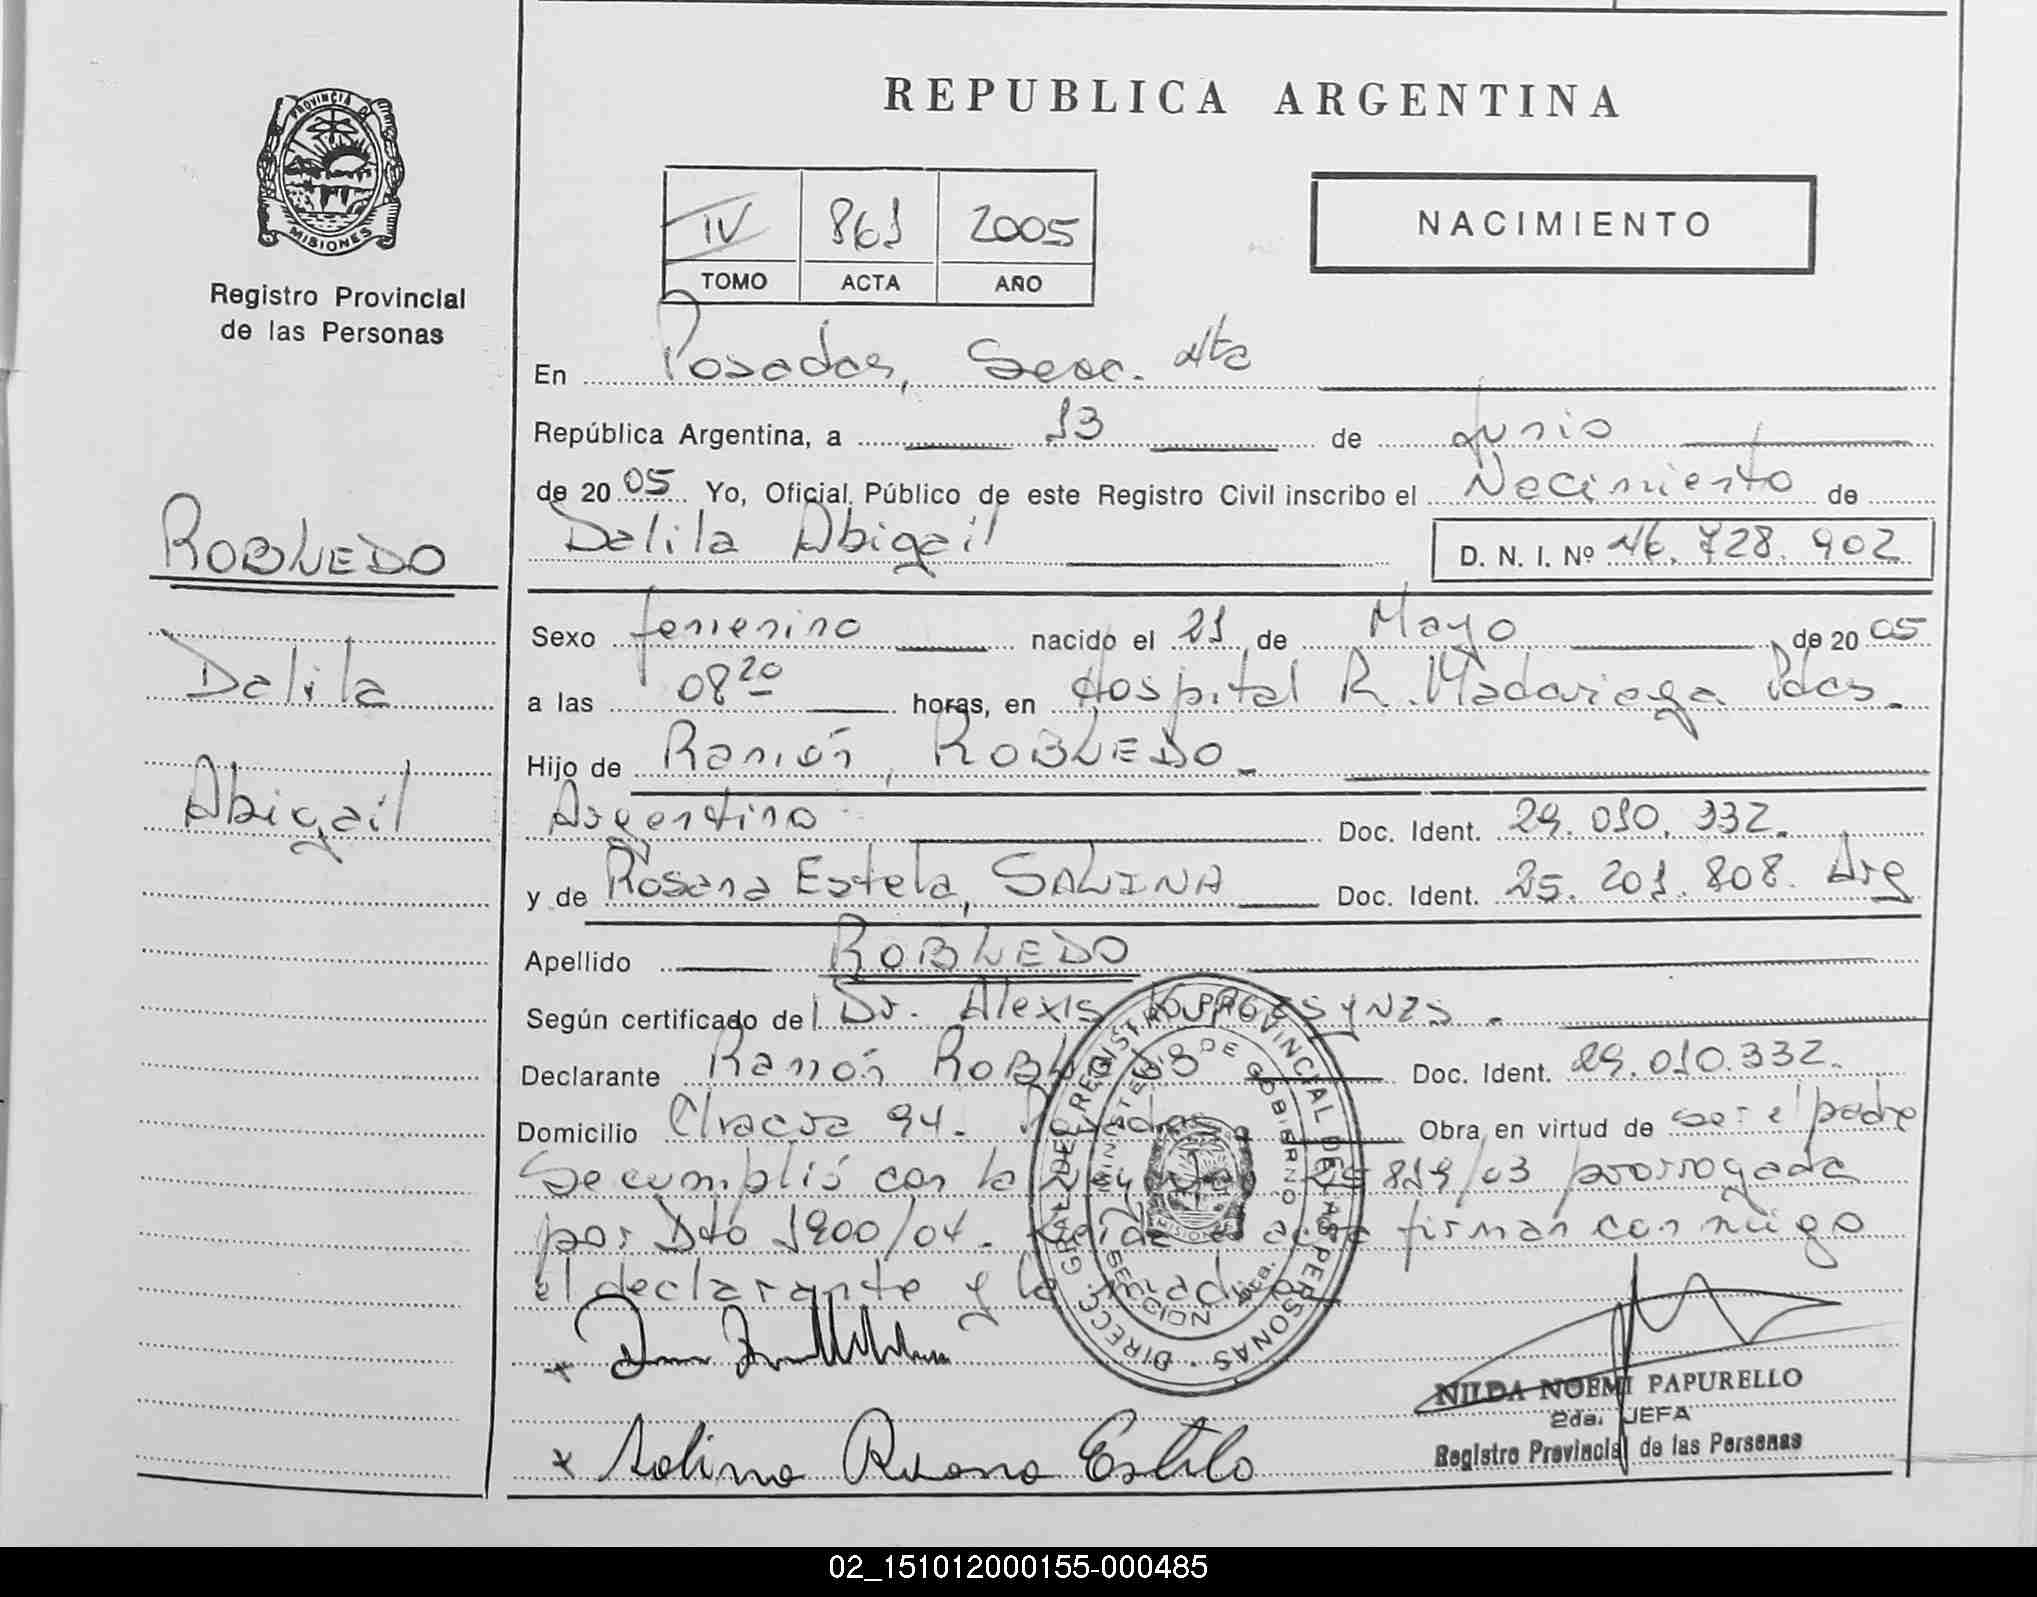 REPUBLICA ARGENTINA
PROVINCIA DE
MISIONES
Registro Provincial
de las Personas
IV 861 2005
TOMO ACTA AÑO
NACIMIENTO
En Posadas, Secc. 4ta
República Argentina, a 13 de Junio
de 2005 Yo, Oficial Público de este Registro Civil inscribo el Nacimiento de
Dalila Abigail D. N. I. Nº 46.728.902
ROBLEDO
Dalila
Abigail
Sexo femenino nacido el 21 de Mayo de 2005
a las 08 20 horas, en Hospital R. Madariaga Pdas.
Hijo de Ramón, ROBLEDO
Argentino Doc. Ident. 29.010.332.
y de Rosana Estela, SALINA Doc. Ident. 25.201.808. Arg
Apellido ROBLEDO
Según certificado del Dr. Alexis
Declarante Ramón Doc. Ident. 29.010.332.
Domicilio Chacra 94. Posadas Obra en virtud de ser el padre
Se cumplió con la Ley 25819/03 prorrogada
por Dto 1900/04. Leída el acta firman conmigo
el declarante y la madre
DIRECC. GRAL. DEL REGISTRO PROVINCIAL DE LAS PERSONAS
MINISTERIO DE GOBIERNO
SECCION 4ta.
Salina Rosana Estela
NILDA NOEMI PAPURELLO
2da. JEFA
Registro Provincial de las Personas
02_151012000155-000485